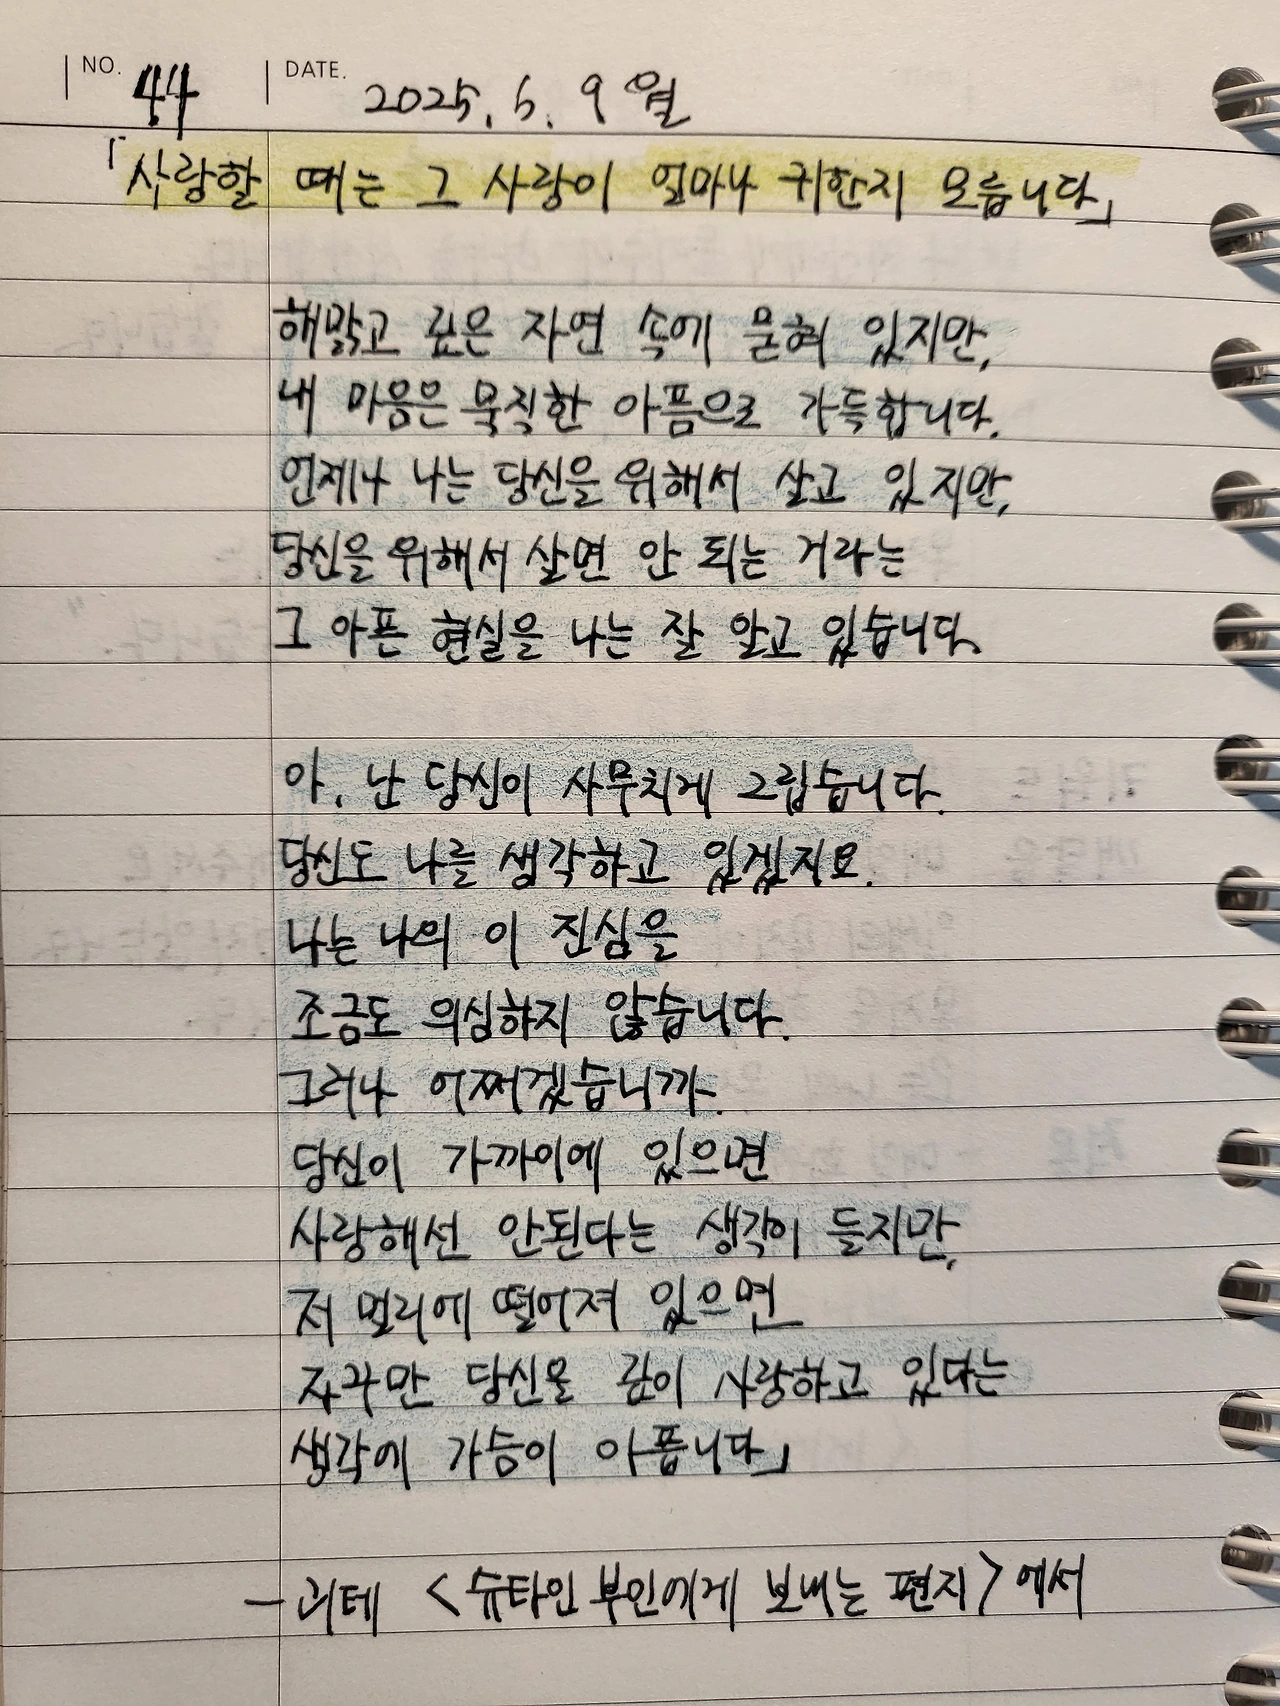 NO. 44 DATE. 2025. 6. 9 월
「사랑할 때는 그 사랑이 얼마나 귀한지 모릅니다」
해맑고 깊은 자연 속에 묻혀 있지만,
내 마음은 묵직한 아픔으로 가득합니다.
언제나 나는 당신을 위해서 살고 있지만,
당신을 위해서 살면 안 되는 거라는
그 아픈 현실을 나는 잘 알고 있습니다.
아, 난 당신이 사무치게 그립습니다.
당신도 나를 생각하고 있겠지요.
나는 나의 이 진심을
조금도 의심하지 않습니다.
그러나 어쩌겠습니까.
당신이 가까이에 있으면
사랑해선 안된다는 생각이 들지만,
저 멀리에 떨어져 있으면
자꾸만 당신을 깊이 사랑하고 있다는
생각에 가슴이 아픕니다」
- 괴테 <슈타인 부인에게 보내는 편지> 에서